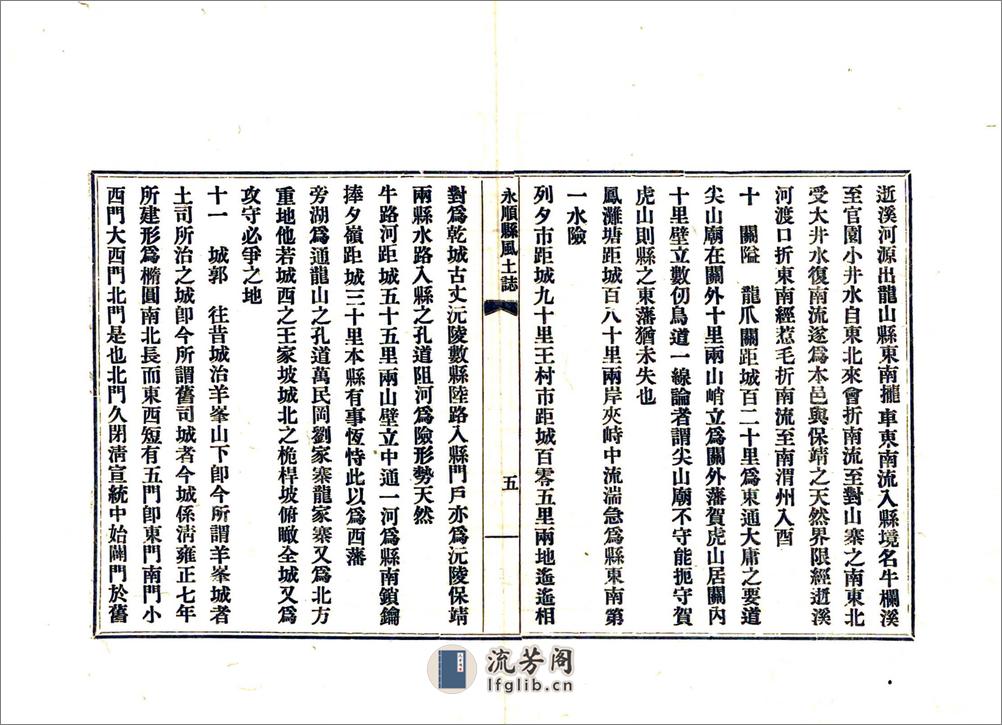 逝溪河源出龍山縣東南攏車東南流入縣境名牛欄溪
至官園小井水自東北來會折南流至對山寨之南東北
受大井水復南流遂爲本邑與保靖之天然界限經逝溪
河渡口折東南經惹毛折南流至南渭州入酉
十　關隘　龍爪關距城百二十里爲東通大庸之要道
尖山廟在關外十里兩山峭立爲關外藩賀虎山居關內
十里壁立數仞鳥道一線論者謂尖山廟不守能扼守賀
虎山則縣之東藩猶未失也
鳳灘塘距城百八十里兩岸夾峙中流湍急爲縣東南第
一水險
列夕市距城九十里王村市距城百零五里兩地遙遙相
永順縣風土誌
五
對爲乾城古丈沅陵數縣陸路入縣門戶亦爲沅陵保靖
兩縣水路入縣之孔道阻河爲險形勢天然
牛路河距城五十五里兩山壁立中通一河爲縣南鎖鑰
捧夕嶺距城三十里本縣有事恆恃此以爲西藩
旁湖爲通龍山之孔道萬民岡劉家寨龍家寨又爲北方
重地他若城西之王家坡城北之桅桿坡俯瞰全城又爲
攻守必爭之地
十一　城郭　往昔城治羊峯山下卽今所謂羊峯城者
土司所治之城卽今所謂舊司城者今城係淸雍正七年
所建形爲橢圓南北長而東西短有五門卽東門南門小
西門大西門北門是也北門久閉淸宣統中始闢門於舊
流芳阁
lfglib.cn